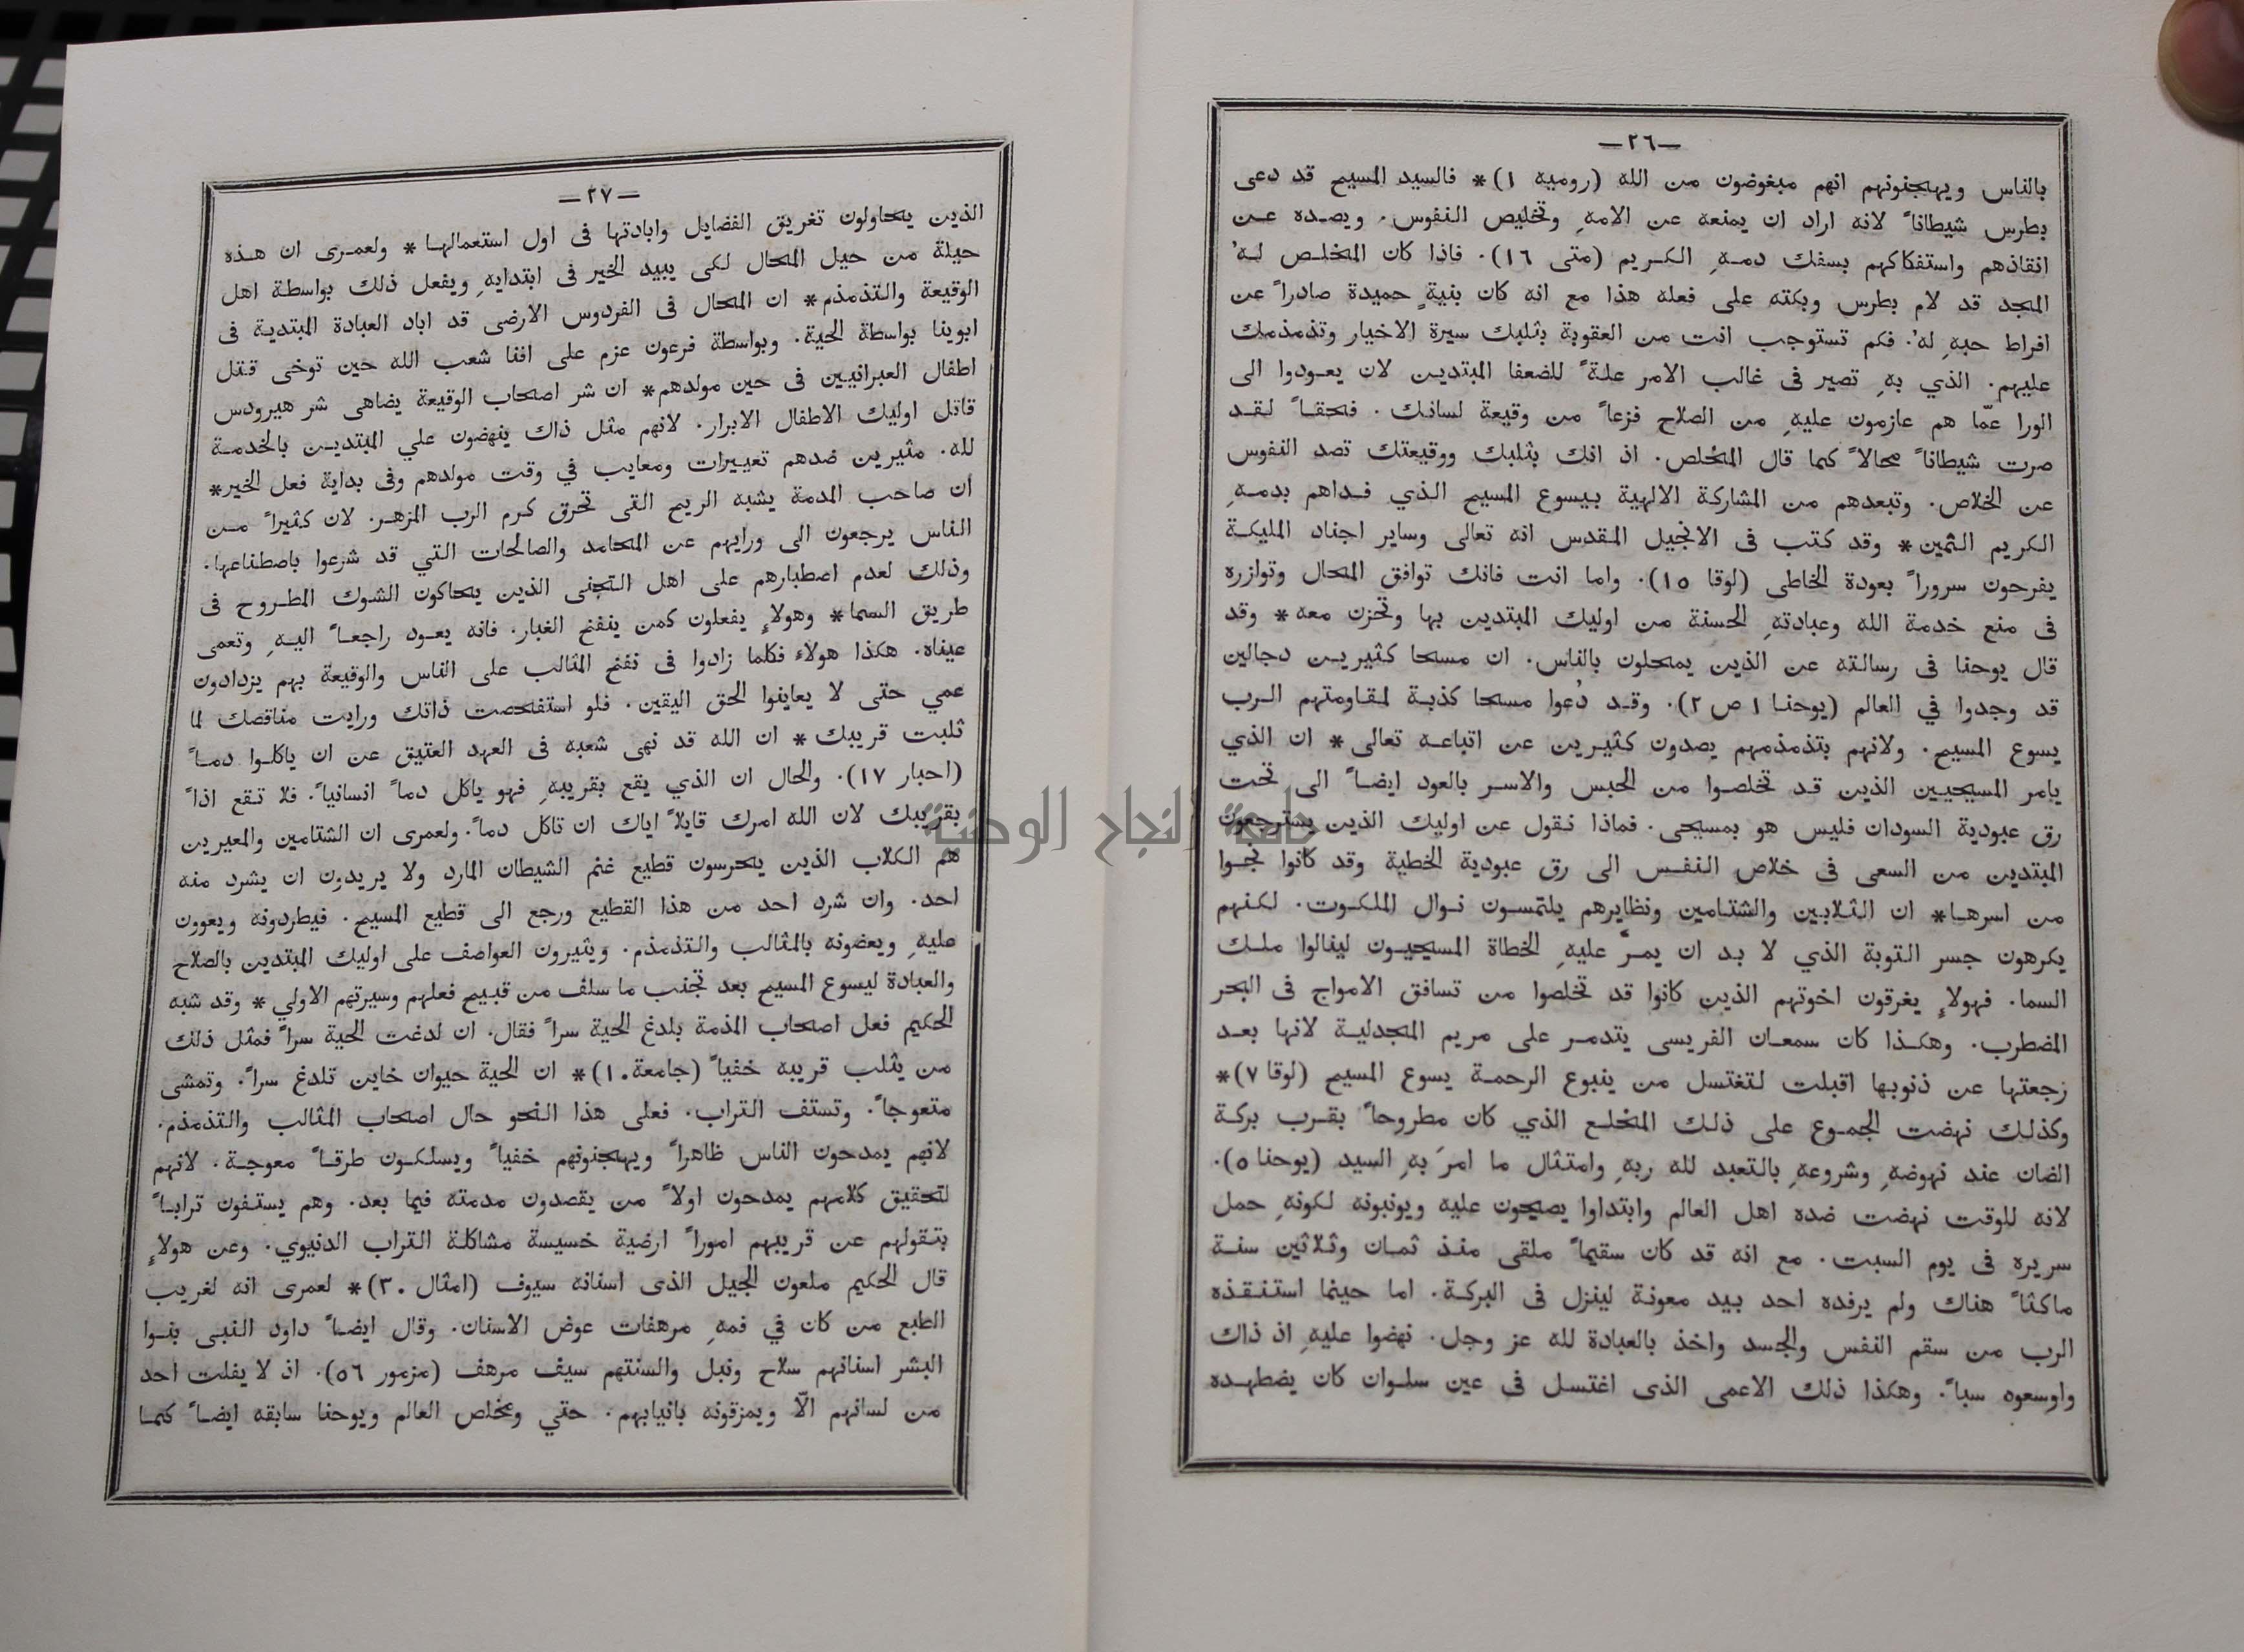 —٢٦—
بالناس ويهجنونهم انهم مبغوضون من الله (روميه ١)* فالسيد المسيح قد دعى
بطرس شيطاناً لانه اراد ان يمنعه عن الامهِ وتخليص النفوس. ويصده عن
انقاذهم واستفكاكهم بسفك دمهِ الكريم (متى ١٦). فاذا كان المخلص لهُ
المجد قد لام بطرس وبكته على فعله هذا مع انه كان بنيةٍ حميدة صادراً عن
افراط حبهِ لهُ. فكم تستوجب انت من العقوبة بثلبك سيرة الاخيار وتذمذمك
عليهم. الذي بهِ تصير فى غالب الامر علةً للضعفا المبتدين لان يعودوا الى
الورا عمّا هم عازمون عليهِ من الصلاح فزعاً من وقيعة لسانك. فحقاً لقد
صرت شيطاناً محالاً كما قال المخلص. اذ انك بثلبك ووقيعتك تصد النفوس
عن الخلاص. وتبعدهم من المشاركة الالهية بيسوع المسيح الذي فداهم بدمهِ
الكريم الثمين* وقد كتب فى الانجيل المقدس انه تعالى وساير اجناد المليكة
يفرحون سروراً بعودة الخاطى (لوقا ١٥). واما انت فانك توافق المحال وتوازره
فى منع خدمة الله وعبادتهِ الحسنة من اوليك المبتدين بها وتحزن معه* وقد
قال يوحنا فى رسالته عن الذين يمحلون بالناس. ان مسحا كثيرين دجالين
قد وجدوا في العالم (يوحنا ١ ص ٢). وقد دُعوا مسحا كذبة لمقاومتهم الرب
يسوع المسيح. ولانهم بتذمذمهم يصدون كثيرين عن اتباعه تعالى* ان الذي
يامر المسيحيين الذين قد تخلصوا من الحبس والاسر بالعود ايضاً الى تحت
رق عبودية السودان فليس هو بمسيحى. فماذا نقول عن اوليك الذين يسترجعون
المبتدين من السعى فى خلاص النفس الى رق عبودية الخطية وقد كانوا نجوا
من اسرها* ان الثلابين والشتامين ونظايرهم يلتمسون نوال الملكوت. لكنهم
يكرهون جسر التوبة الذي لا بد ان يمرَّ عليهِ الخطاة المسيحيون لينالوا ملك
السما. فهولاءِ يغرقون اخوتهم الذين كانوا قد تخلصوا من تسافق الامواج فى البحر
المضطرب. وهكذا كان سمعان الفريسى يتدمر على مريم المجدلية لانها بعد
رجعتها عن ذنوبها اقبلت لتغتسل من ينبوع الرحمة يسوع المسيح (لوقا ٧)*
وكذلك نهضت الجموع على ذلك المخلع الذي كان مطروحاً بقرب بركة
الضان عند نهوضهِ وشروعهِ بالتعبد لله ربهِ وامتثال ما امرَ بهِ السيد (يوحنا ٥).
لانه للوقت نهضت ضده اهل العالم وابتداوا يصيحون عليه ويونبونه لكونهِ حمل
سريره فى يوم السبت. مع انه قد كان سقيماً ملقى منذ ثمان وثلاثين سنة
ماكثاً هناك ولم يرفده احد بيد معونة لينزل فى البركة. اما حينما استنقذه
الرب من سقم النفس والجسد واخذ بالعبادة لله عز وجل. نهضوا عليهِ اذ ذاك
واوسعوه سباً. وهكذا ذلك الاعمى الذى اغتسل فى عين سلوان كان يضطهده
—٢٧—
الذين يحاولون تغريق الفضايل وابادتها فى اول استعمالها* ولعمرى ان هذه
حيلة من حيل المحال لكى يبيد الخير فى ابتدايهِ ويفعل ذلك بواسطة اهل
الوقيعة والتذمذم* ان المحال فى الفردوس الارضى قد اباد العبادة المبتدية فى
ابوينا بواسطة الحية. وبواسطة فرعون عزم على افنا شعب الله حين توخى قتل
اطفال العبرانيين فى حين مولدهم* ان شر اصحاب الوقيعة يضاهى شر هيرودس
قاتل اوليك الاطفال الابرار. لانهم مثل ذاك ينهضون علي المبتدين بالخدمة
لله. مثيرين ضدهم تعييرات ومعايب في وقت مولدهم وفى بداية فعل الخير*
ان صاحب المدمة يشبه الريح التى تحرق كرم الرب المزهر. لان كثيراً من
الناس يرجعون الى ورايهم عن المحامد والصالحات التي قد شرعوا باصطناعها.
وذلك لعدم اصطبارهم على اهل التجنى الذين يحاكون الشوك المطروح فى
طريق السما* وهولاءِ يفعلون كمن ينفخ الغبار. فانه يعود راجعاً اليهِ وتعمى
عيناه. هكذا هولاء فكلما زادوا فى نفخ المثالب على الناس والوقيعة بهم يزدادون
عمي حتى لا يعاينوا الحق اليقين. فلو استفحصت ذاتك ورايت مناقصك لما
ثلبت قريبك* ان الله قد نهى شعبه فى العهد العتيق عن ان ياكلوا دماً
(احبار ١٧). والحال ان الذي يقع بقريبهِ فهو ياكل دماً انسانياً. فلا تقع اذاً
بقريبك لان الله امرك قايلاً اياك ان تاكل دماً. ولعمرى ان الشتامين والمعيرين
هم الكلاب الذين يحرسون قطيع غنم الشيطان المارد ولا يريدون ان يشرد منه
احد. وان شرد احد من هذا القطيع ورجع الى قطيع المسيح. فيطردونه ويعوون
عليهِ ويعضونه بالمثالب والتذمذم. ويثيرون العواصف على اوليك المبتدين بالصلاح
والعبادة ليسوع المسيح بعد تجنب ما سلف من قبيح فعلهم وسيرتهم الاولي* وقد شبه
الحكيم فعل اصحاب المذمة بلدغ الحية سراً فقال. ان لدغت الحية سراً فمثل ذلك
من يثلب قريبه خفياً (جامعة ١٠)* ان الحية حيوان خاين تلدغ سراً. وتمشى
متعوجاً. وتستف التراب. فعلى هذا النحو حال اصحاب المثالب والتذمذم.
لانهم يمدحون الناس ظاهراً ويهجنونهم خفياً ويسلكون طرقاً معوجة. لانهم
لتحقيق كلامهم يمدحون اولاً من يقصدون مدمته فيما بعد. وهم يستفون تراباً
بتقولهم عن قريبهم اموراً ارضية خسيسة مشاكلة التراب الدنيوي. وعن هولاءِ
قال الحكيم ملعون الجيل الذى اسنانه سيوف (امثال ٣٠)* لعمرى انه لغريب
الطبع من كان في فمهِ مرهفات عوض الاسنان. وقال ايضاً داود النبى بنوا
البشر اسنانهم سلاح ونبل والسنتهم سيف مرهف (مزمور ٥٦). اذ لا يفلت احد
من لسانهم الّا ويمزقونه بانيابهم. حتي ومخلص العالم ويوحنا سابقه ايضاً كما
جامعة النجاح الوطنية